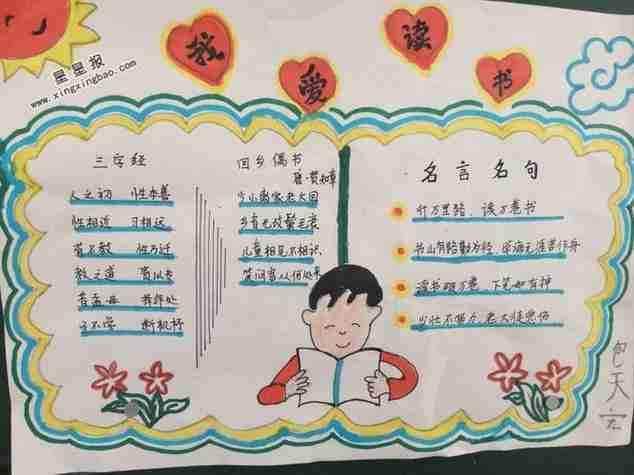 星星报
www.xingxingbao.com
我爱读书
三字经
人之初 性本善
性相近 习相远
苟不教 性乃迁
教之道 贵以专
昔孟母 择邻处
子不学 断机杼
回乡偶书
唐·贺知章
少小离家老大回
乡音无改鬓毛衰
儿童相见不相识
笑问客从何处来
名言名句
行万里路，读万卷书
书山有路勤为径，学海无涯苦作舟
读书破万卷，下笔如有神
少壮不努力，老大徒悲伤
包天